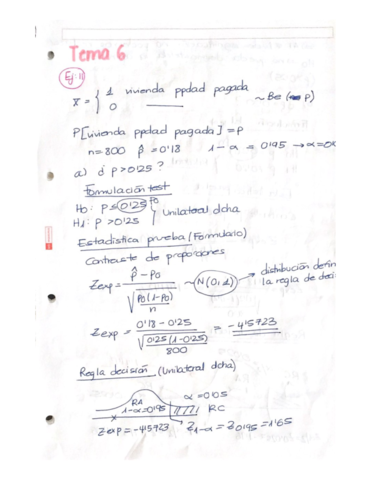 Tema 6
Ej 11
X = { 1 vivienda ppdad pagada
0 ——— ~ Be (p)
P[vivienda ppdad pagada] = p
n=800 p̂ = 0'18 1-α = 0'95 → α=0'0
a) ¿ p > 0'25 ?
Formulación test
H0: p ≤ 0'25 P0
H1: p > 0'25 } Unilateral dcha
Estadística prueba (Formulario)
Contraste de proporciones
Zexp = p̂ - P0 / √(P0(1-P0) / n) ~ N(0,1) → distribución defin
la regla de deci
Zexp = 0'18 - 0'25 / √(0'25(1-0'25) / 800) = -4'5723
Regla decisión (Unilateral dcha)
RA α = 0'05
1-α=0'95 RC
Zexp = -4'5723 Z1-α = Z0'95 = 1'65